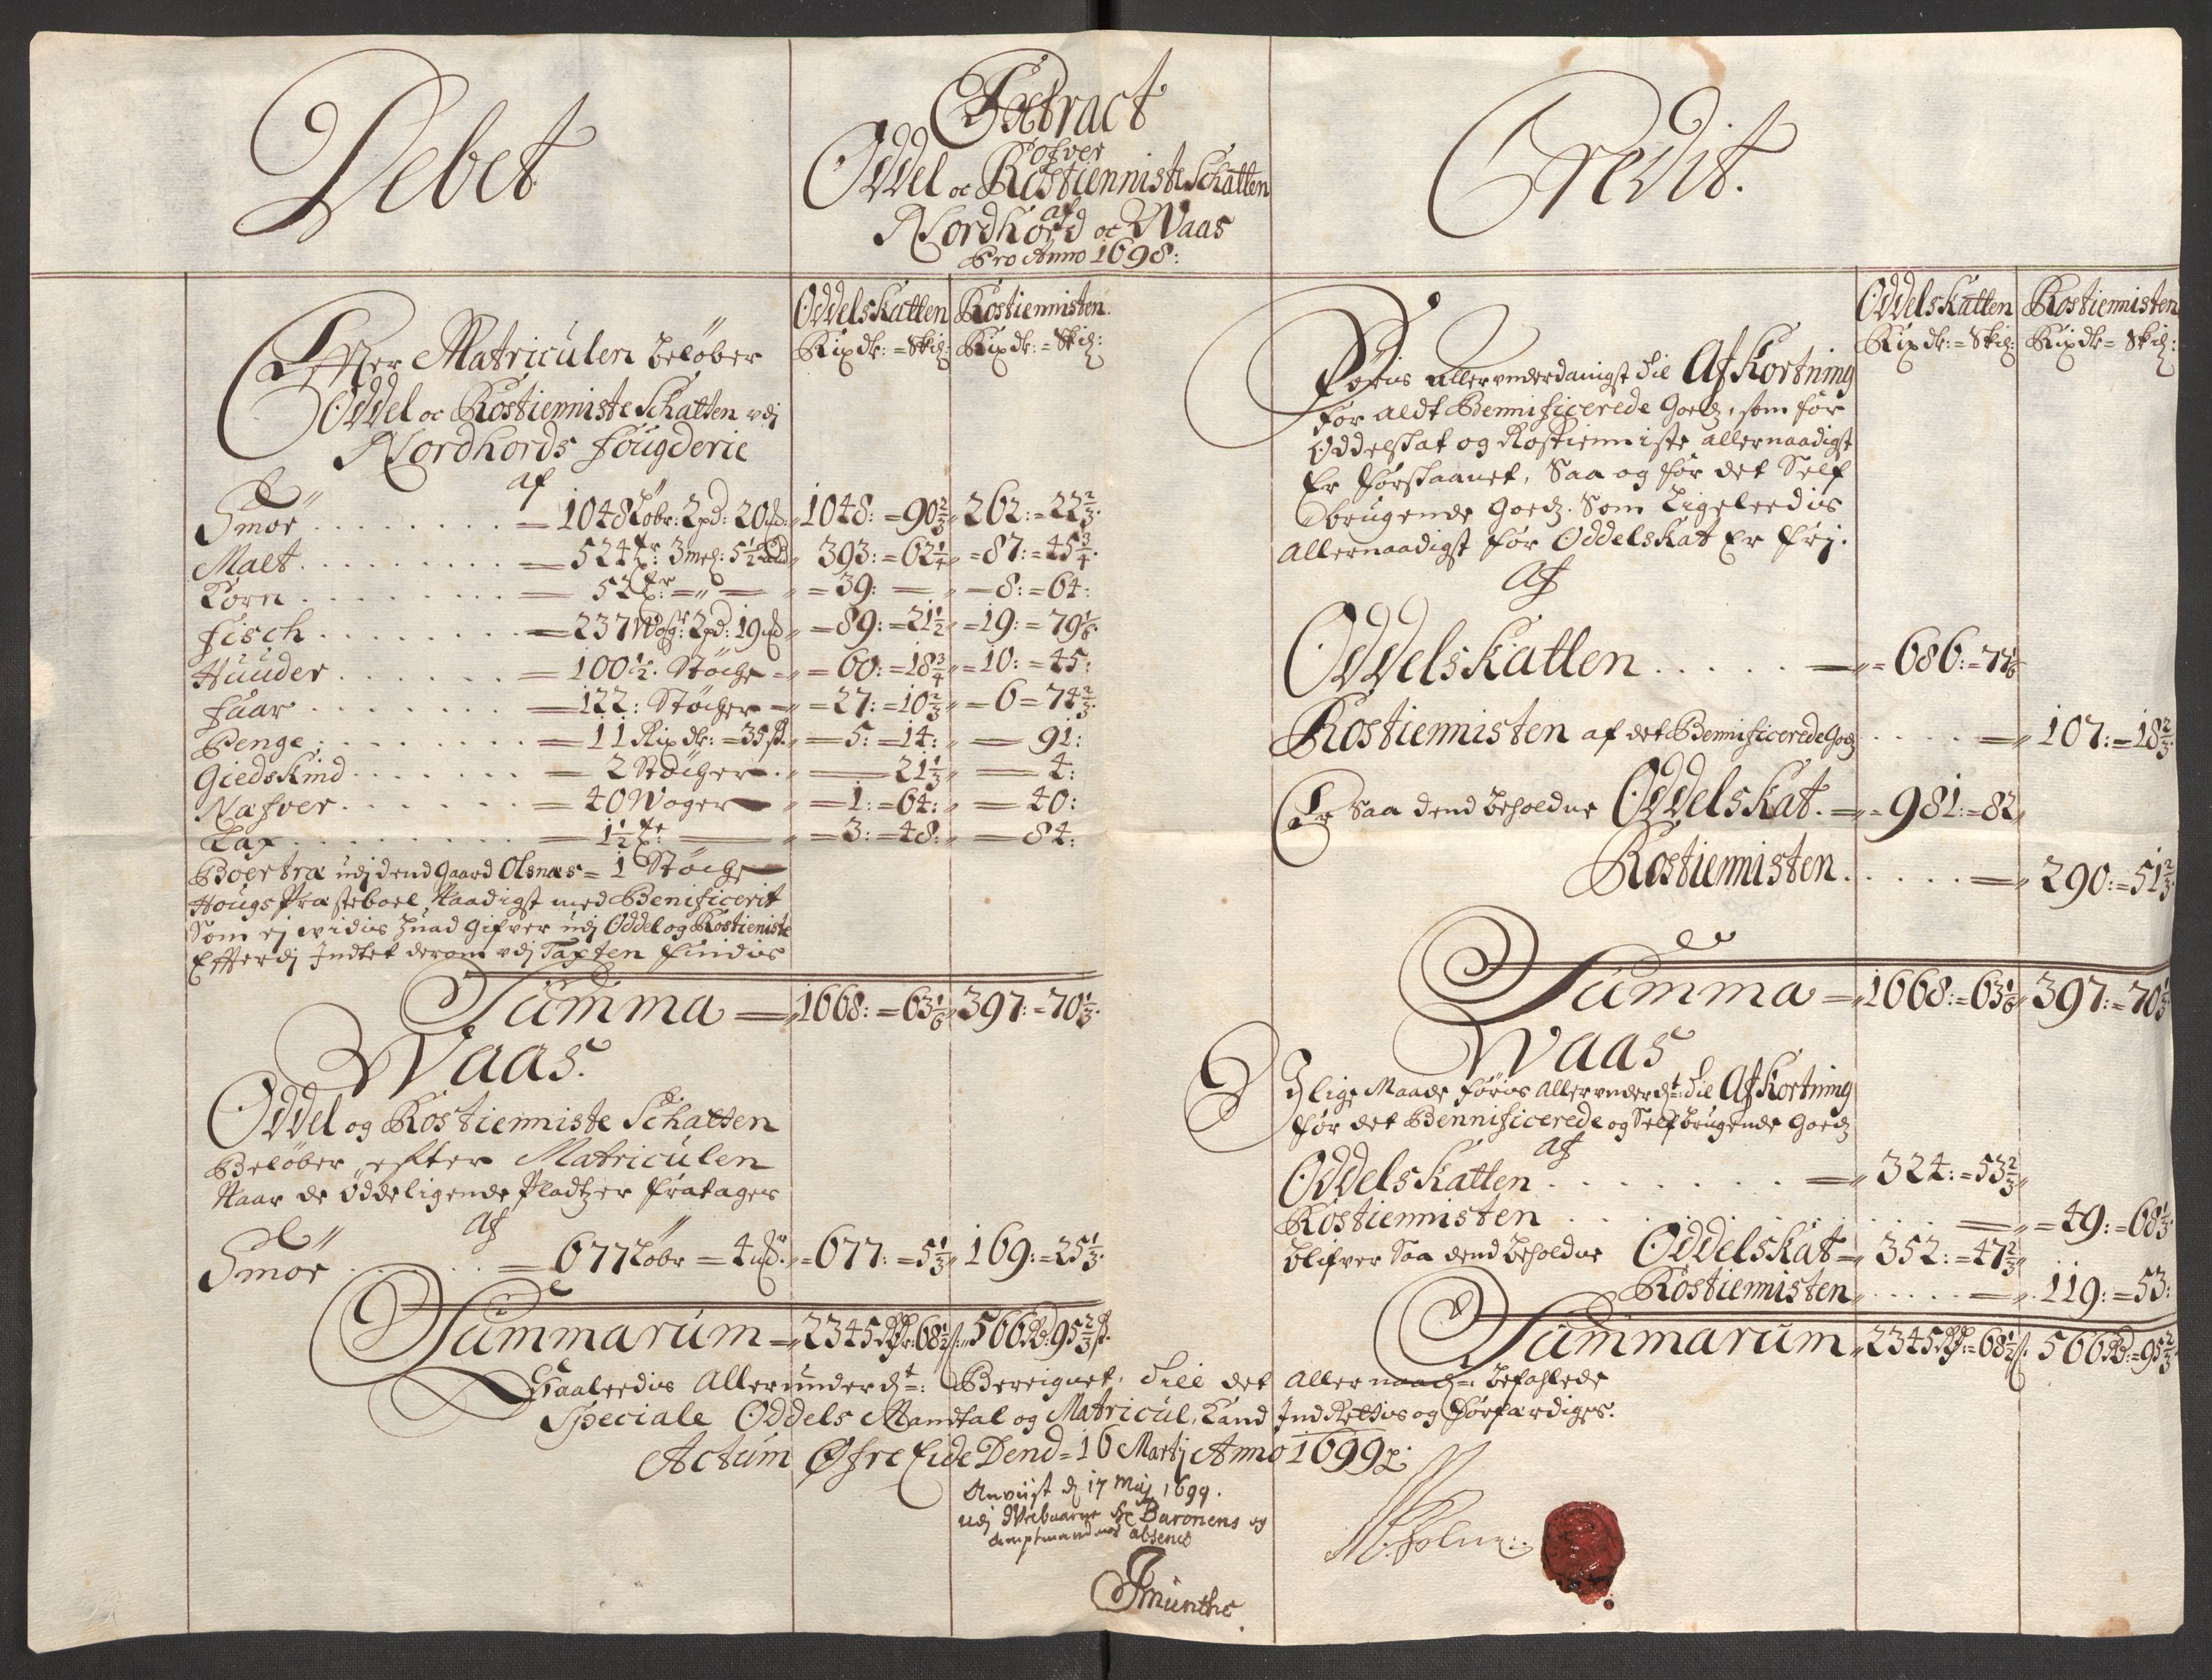 Debet
Extract
ofver
Oddel oc Rostienniste Schatten
af
Nordhord oc Waas
Pro Anno 1698:
Credit.
Oddelskatten Rostiennisten
Rixdr: = Skil: Rixdr: = Skil:
Effter Matriculen beløber
Oddel oc Rostienniste Schatten udj
Nordhords Fougderie
af
Smør . . . . . = 1048 Løbr: 2 pd: 20 = 1048: = 90 2/3 = 262: = 22 2/3
Malt . . . . . = 524 3 meh: 5 1/2 = 393: = 62 1/4 = 87: = 45 3/4
Korn . . . . . = 52 = 39: = 8: = 64:
Fisch . . . . . = 237 Wog: 2 pd: 19 = 89: = 21 1/2 = 19: = 79 1/8
Huuder . . . . . = 100 1/2 Støche = 60: = 18 3/4 = 10: = 45:
Faar . . . . . = 122: Støcher = 27: = 10 2/3 = 6 = 74 2/3
Penge . . . . . = 11 Rixdr: = 35 ß = 5: = 14: = 91:
Giedskind . . . . . = 2 Støcher = 21 1/3 = 4:
Næfver . . . . . = 40 Woger = 1: = 64: = 40:
Lax . . . . . = 1 1/2 = 3: = 48: = 84:
Boertræ udj dend Gaard Olsnæs = 1 Støche
Hougs Præsteboel Naadigst med Benificerit
Som ej vidis huad Gifver udj Oddel og Rostieniste
Effterdj Indtet derom udj Taxten findis
Summa = 1668: = 63 1/6 397: = 70 1/3
Waas.
Oddel og Rostienniste Schatten
Beløber efter Matriculen
Naar de øddeligende Pladtzer fratages
af
Smør . . . = 677 Løbr = 4 = 677: = 5 1/3 169: = 25 1/3
Summarum = 2345 Rdr: 68 1/2 ß 566 Rd: 95 2/3 ß
Oddelskatten Rostiennisten
Rixdr: = Skil: Rixdr = Skil:
Føris allerunderdanigst til Afkortning
for aldt Bennificerede Goedz, som for
Oddelskat og Rostienniste allernaadigst
Er forskaanet, Saa og for det Self
brugende Goedz. Som Ligeleedis
allernaadigst for Oddelskat Er frj.
Af
Oddelskatten . . . . . = 686: = 77 1/6
Rostiennisten af det Bennificerede Godz . . . . = 107: = 18 2/3
Er Saa dend beholdne Oddelskat. = 981: = 82
Rostiennisten . . . . . = 290: = 51 2/3
Summa = 1668: = 63 1/6 397: = 70 1/3
Waas
I lige Maade føris Allerunderdt: til Afkortning
for det Bennificerede og Selfbrugende Goedz
Af
Oddelskatten . . . . . = 324: = 53 2/3
Rostiennisten . . . . . = 49: = 68 1/3
blifver Saa dend beholdne Oddelskat = 352: = 47 2/3
Rostiennisten . . . . = 119: = 53:
Summarum 2345 Rdr: = 68 1/2 ß 566 Rd: = 95 2/3
Saaleedis Allerunderdt: Bereignet, till det Allernaadt: befahlede
Speciale Oddels Mandtal og Matricul, Kand Ind Rettis og forfærdiges.
Actum Øfre Eide Dend = 16 Martj Anno 1699
Anviist d 17 Maj 1699.
udj Velbaarne Hr Baronens og
Amptmandens absence
JMünthe
Holm: